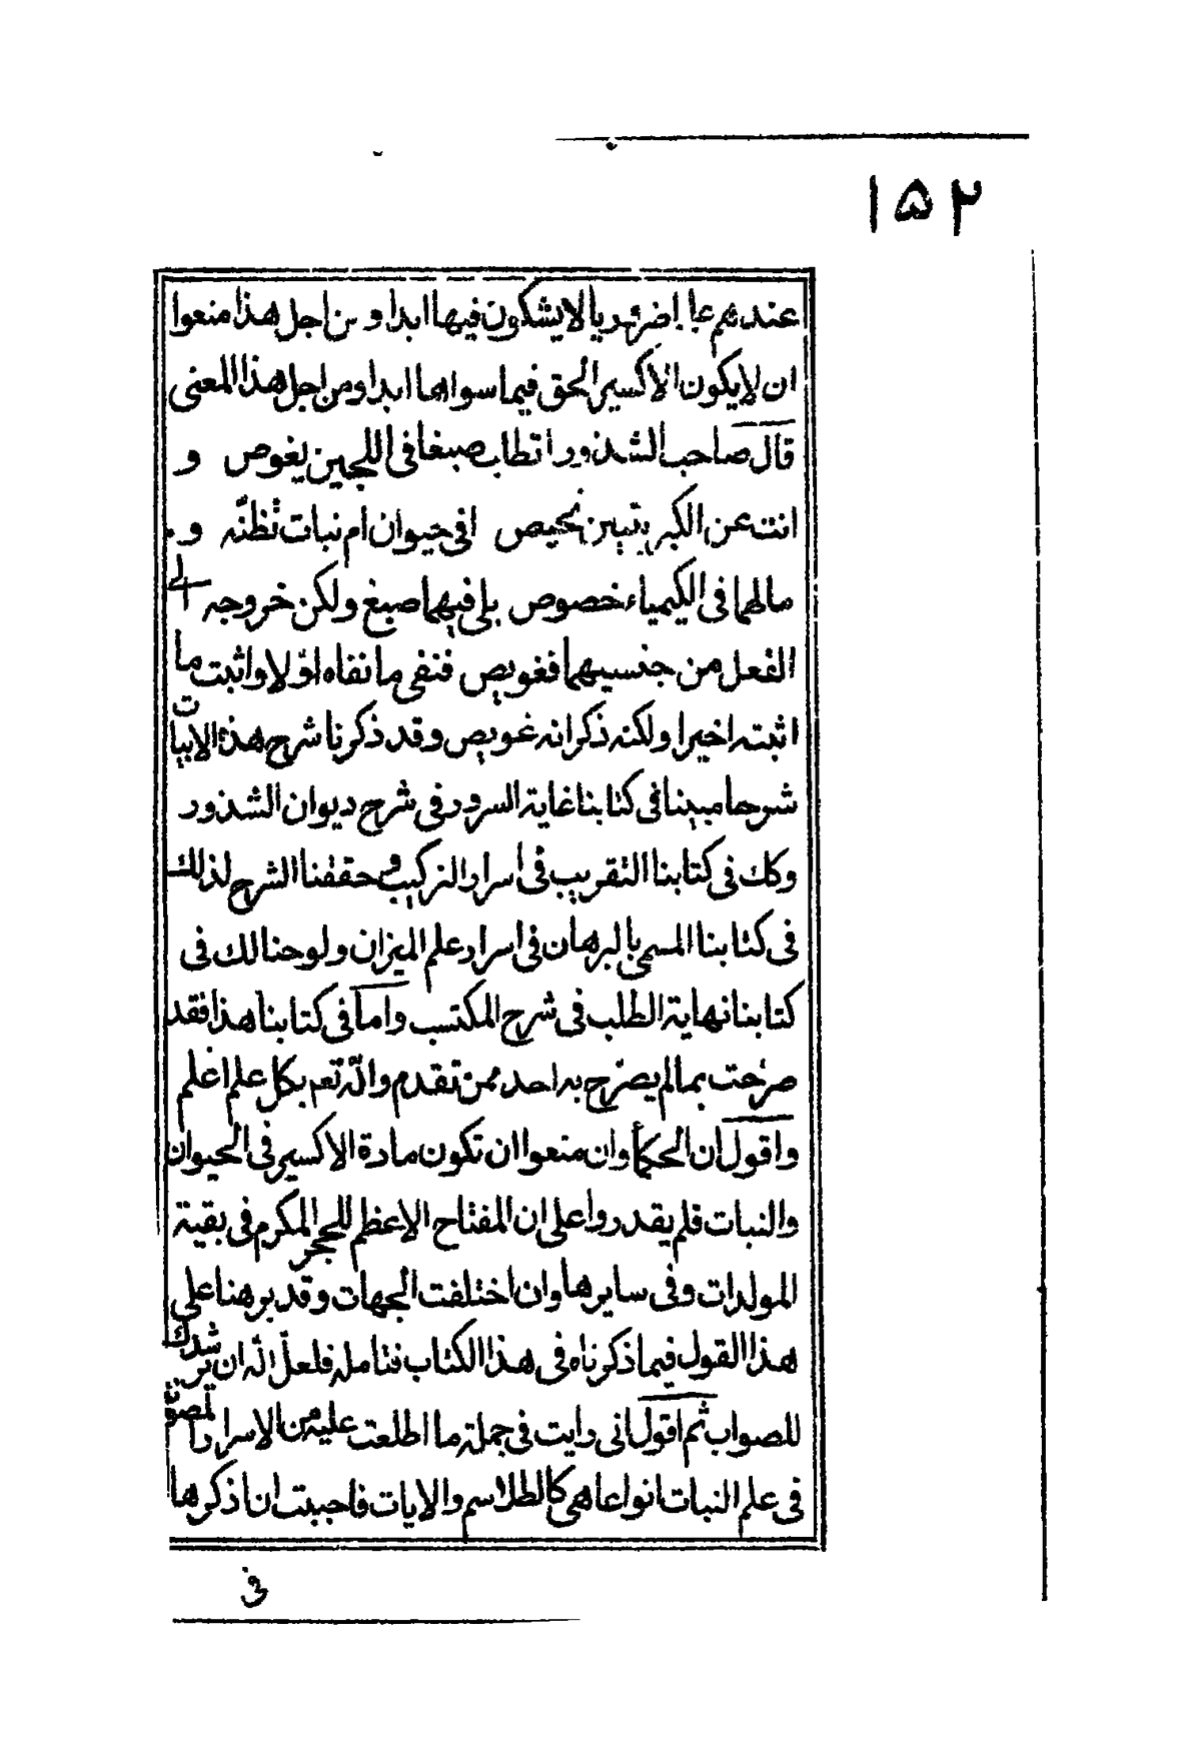 ۱۵۲
عندهم علما ضروريا لا يشكون فيها ابدا و من اجل هذا منعوا
ان لا يكون الاكسير الحق فيما سواهما ابدا ومن اجل هذا المعنى
قال صاحب الشذور اتطلب صبغا فى اللجين يغوص و
انت عن الكبريتين تحيص افى حيوان ام نبات تظنّه و
مالهما فى الكيمياء خصوص بلى فيهما صبغ ولكن خروجه الى
الفعل من جنسيهما فغويص فنفى ما نفاه اوّلا واثبت ما
اثبته اخيرا ولكنه ذكر انه غويص وقد ذكرنا شرح هذه الابيات
شرحا مبينا فى كتابنا غاية السرور فى شرح ديوان الشذور
وكك فى كتابنا التقريب فى اسرار التركيب و حققنا الشرح لذلك
فى كتابنا المسمى بالبرهان فى اسرار علم الميزان ولوحنا لك فى
كتابنا نهاية الطلب فى شرح المكتسب واما فى كتابنا هذا فقد
صرّحت بمالم يصرّح به احد ممن تقدم والله تعم بكل علم اعلم
واقول ان الحكمأ وان منعوا ان تكون مادة الاكسير فى الحيوان
والنبات فلم يقدروا على ان المفتاح الاعظم للحجر المكرم فى بقية
المولدات وفى سايرها وان اختلفت الجهات وقد برهنا على
هذا القول فيما ذكرناه فى هذا الكتاب فتامله فلعلّ الله ان يرشدك
للصواب ثم اقول انى رايت فى جملة ما اطلعت عليه من الاسرار المصونة
فى علم النبات انواعا هى كالطلاسم والايات فاجببت ان اذكرها
فى